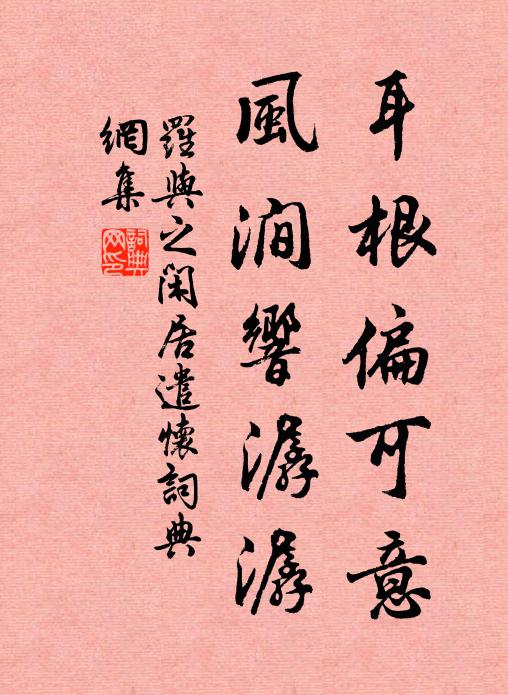 耳根偏可意
風澗響潺潺
羅與之閑居遣懷詞典
網集
詞典
網印